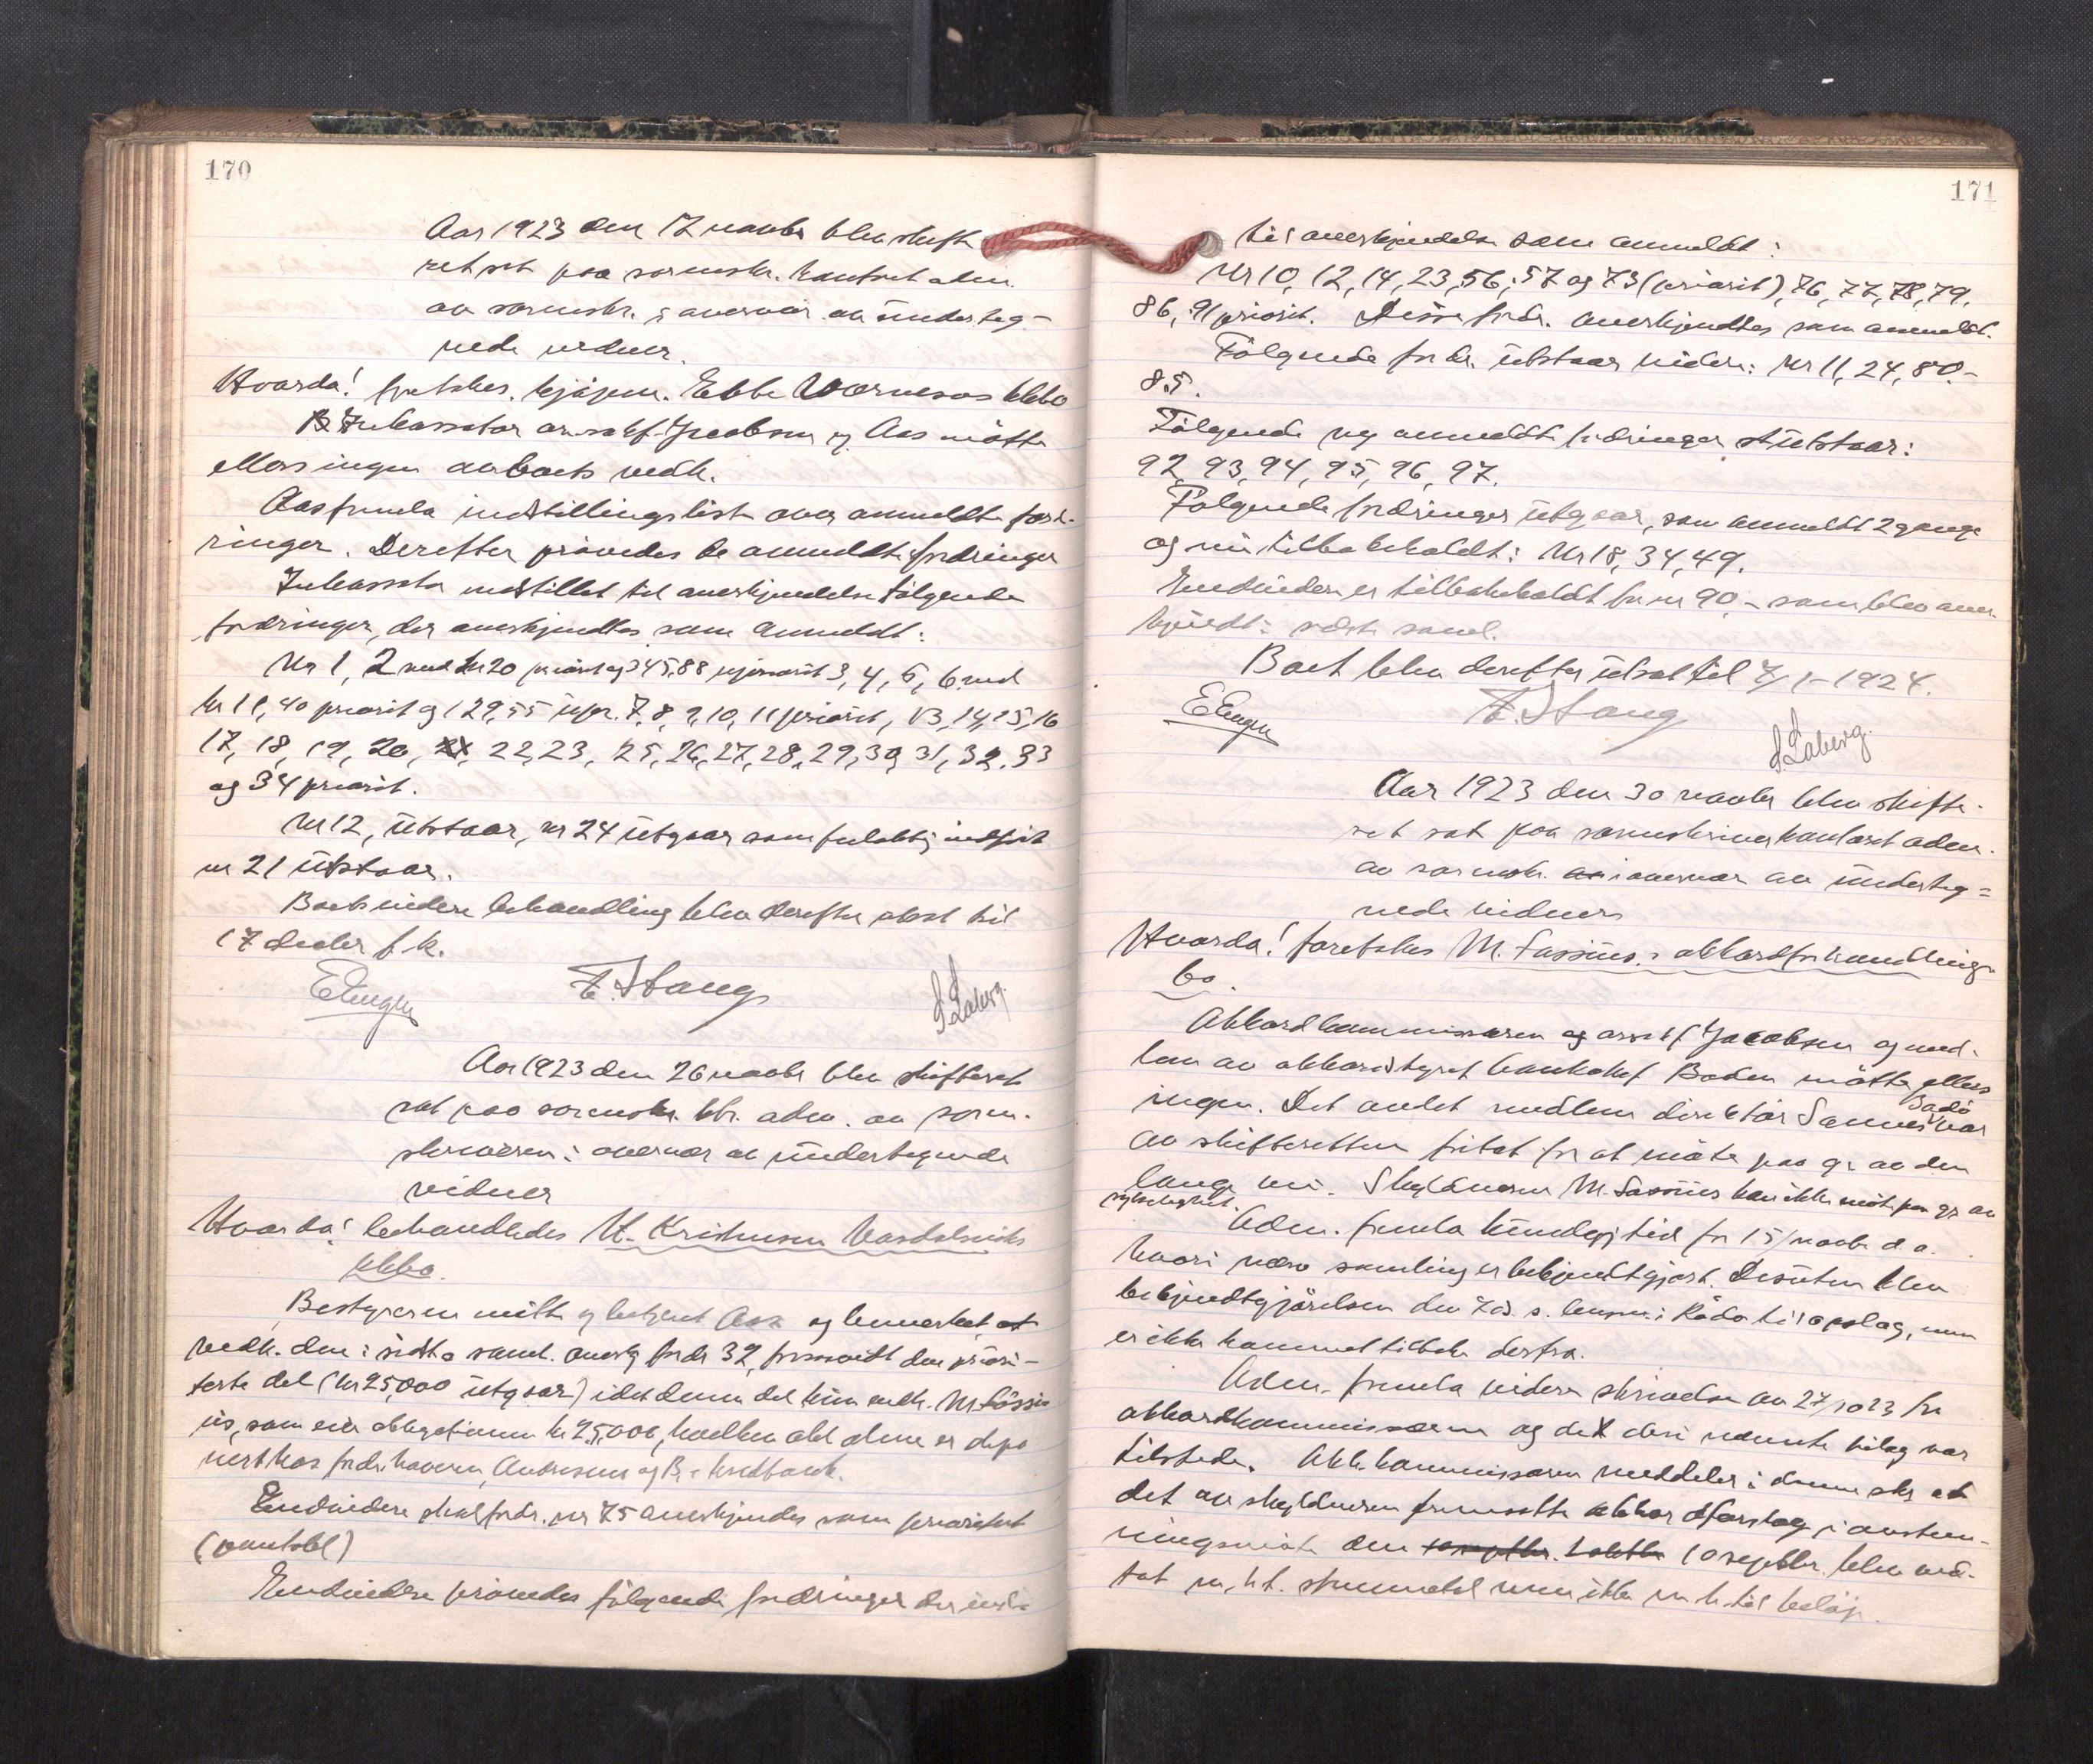 170
Aar 1923 den 17 novbr blev skifte
ret sat paa sorenskr. kontoret adm.
av sorenskr. i overvær av underteg-
nede vidner.
Hvorda! foretokes kjøpm. Ebbe Wærnesos kkbo
Inkassator o.r.sakf. Jacobsen og Aas møtte
ellers ingen anboets vedk.
Aas freml. indstillingsliste over anmeldte ford-
ringer. Derefter prövedes de anmeldte fordringer
Inkassator indstillet til anerkjendelse følgende
fordringer, der anerkjendtes som anmeldt:
Nr 1, 2 med kr 20 priorit og 345,88 upriorit 3, 4, 5, 6 med
kr 11,40 priorit og 129,55 upr. 7, 8, 9, 10, 11 priorit, 13, 14, 15, 16
17, 18, 19, 20, 21, 22, 23, 25, 26, 27, 28, 29, 30, 31, 32, 33
og 34 priorit.
Nr 12, utstaar, nr 24 utgaar som
nr 21 utstaar.
Boets videre behandling blev derefter utsat til
17 decbr f. k.
E Enger F. Stang S. Laberg.
Aar 1923 den 26 novbr blev skifteret
sat paa sorenskr. ktr. adm. av soren-
skriveren i overvær av undertegnede
vidner
Hvorda! behandledes H. Kristensen Vaardalsviks
kkbo.
Bestyreren møtte og betjent Aas og bemerket, at
vedk. den i sidste saml. anerkj fordr 32, forsaavidt den priori-
terte del (kr 25,000 utgaar) idet denne del kun vedk. M. Sössi
us, som eier obligationen kr 25,000, hvilken obl alene er depo
nert hos fordr. haveren, Andresens og B. Kreditbank.
Endvidere skal fordr. nr 75 anerkjendes som prioritert
(pantobl)
Endvidere prövedes følgende fordringer der indst.
171
til anerkjendelse som anmeldt:
Nr 10, 12, 14, 23, 56, 57 og 73 (priorit), 76, 77, 78, 79,
86, 91 priorit. Disse fordr. anerkjendtes som anmeldt.
Følgende fordr. utstaar videre: Nr 11, 24, 80,-
85.
Følgende ny anmeldte fordringer utstaar:
92, 93, 94, 95, 96, 97.
Følgende fordringer utgaar, som anmeldt 2 gange
og nu tilbakekaldt: Nr 18, 34, 49.
Endvidere er tilbakekaldt for nr 90,- som blev aner
kjendt i sidste saml.
Boet blev derefter utsat til 7/1-1924.
E Enger F. Stang S. Laberg.
Aar 1923 den 30 novbr blev skifte-
ret sat paa sorenskriverkontoret adm.
av sorenskr. i overvær av underteg=
nede vidner
Hvorda! foretokes M. Sassius.s akkordforhandlings
bo.
Akkordkommissæren o.r.sakf Jacobsen og med-
lem av akkordstyret banksjef Boden møtte, ellers
ingen. Det andet medlem direktør Sannes Bodø var
av skifteretten fritat for at møte paa gr av den
lange vei. Skyldneren M. Sassius kan ikke møte paa gr av
sykelighet.
Adm. freml. kundgj tid for 15/novbr d. a.
hvori nærv samling er bekjendtgjort. Desuten blev
bekjendtgjörelsen den 7 ds. s. lensm. i Rødø til opslag, men
er ikke kommet tilbake derfra.
Adm. freml. videre skrivelse av 27/10 23 fra
akkordkommissæren og de deri nævnte bilag var
tilstede. Akk. kommissæren meddeler i denne skr at
det av skyldneren fremsatte akkordforslag i avstem-
ningsmøte den 10 septbr. blev ved-
tat m. h. t. stemmetal men ikke m h. til beløp.